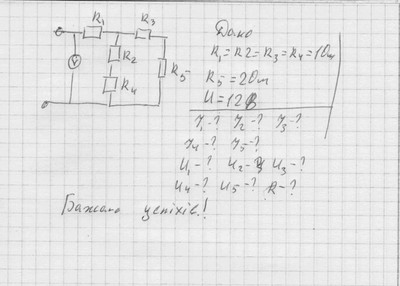 R₁ R₃
V R₂ R₅
R₄
Дано
R₁ = R₂ = R₃ = R₄ = 1Ом
R₅ = 2Ом
U = 12В
I₁ - ? I₂ - ? I₃ - ?
I₄ - ? I₅ - ?
U₁ - ? U₂ - ? U₃ - ?
U₄ - ? U₅ - ? R - ?
Бажаю успіхів!